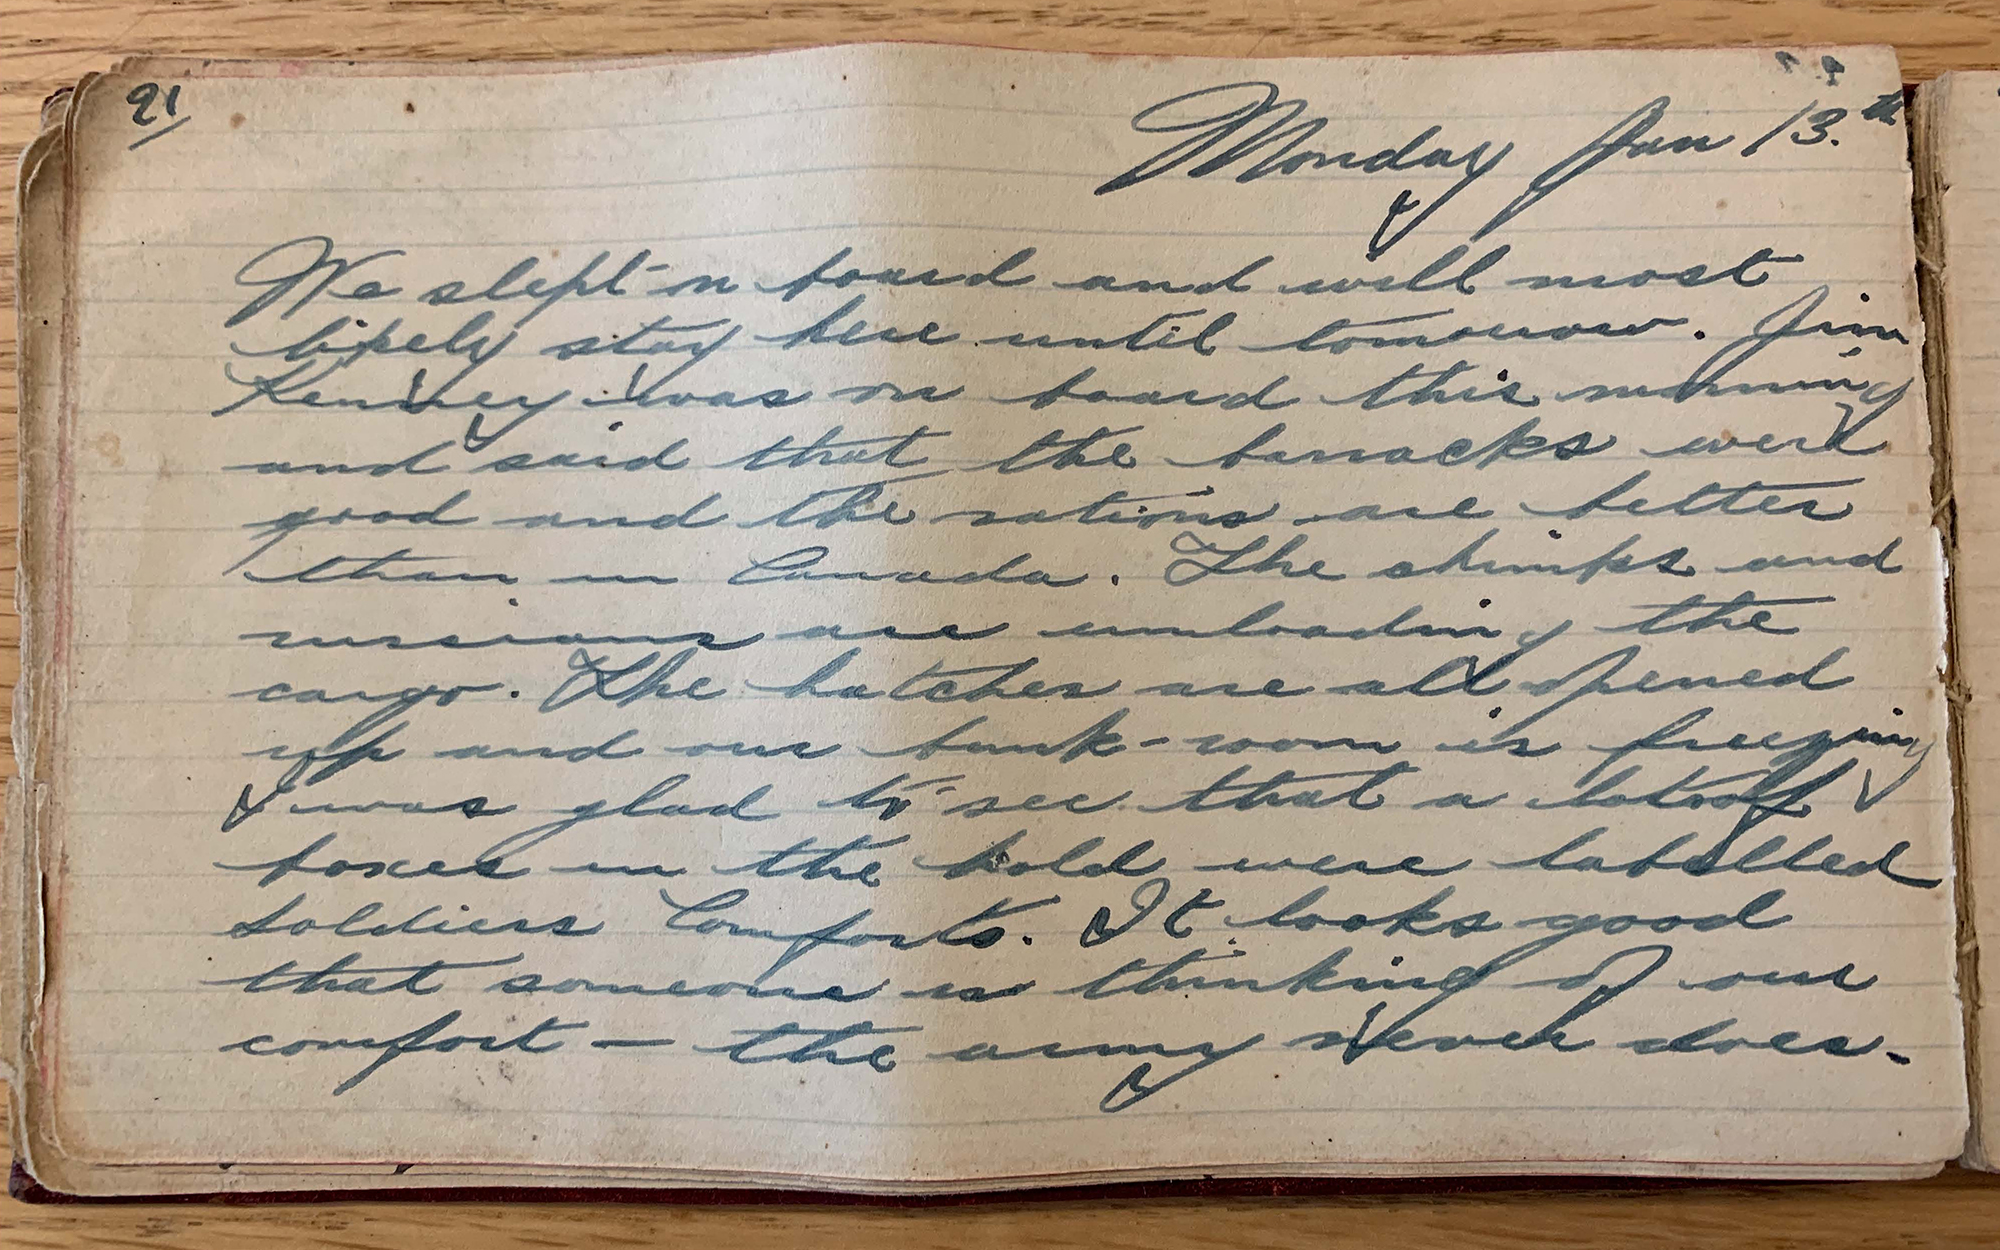 21
Monday Jan 13.th
We slept on board and will most
likely stay here until tomorrow. Jim
Kenney was on board this morning
and said that the barracks were
good and the rations are better
than in Canada. The chinks and
russians are unloading the
cargo. The hatches are all opened
up and our bunk-room is freezing
was glad to see that a lot of
boxes in the hold were labelled
Soldiers Comforts. It looks good
that someone is thinking of our
comfort — the army never does.